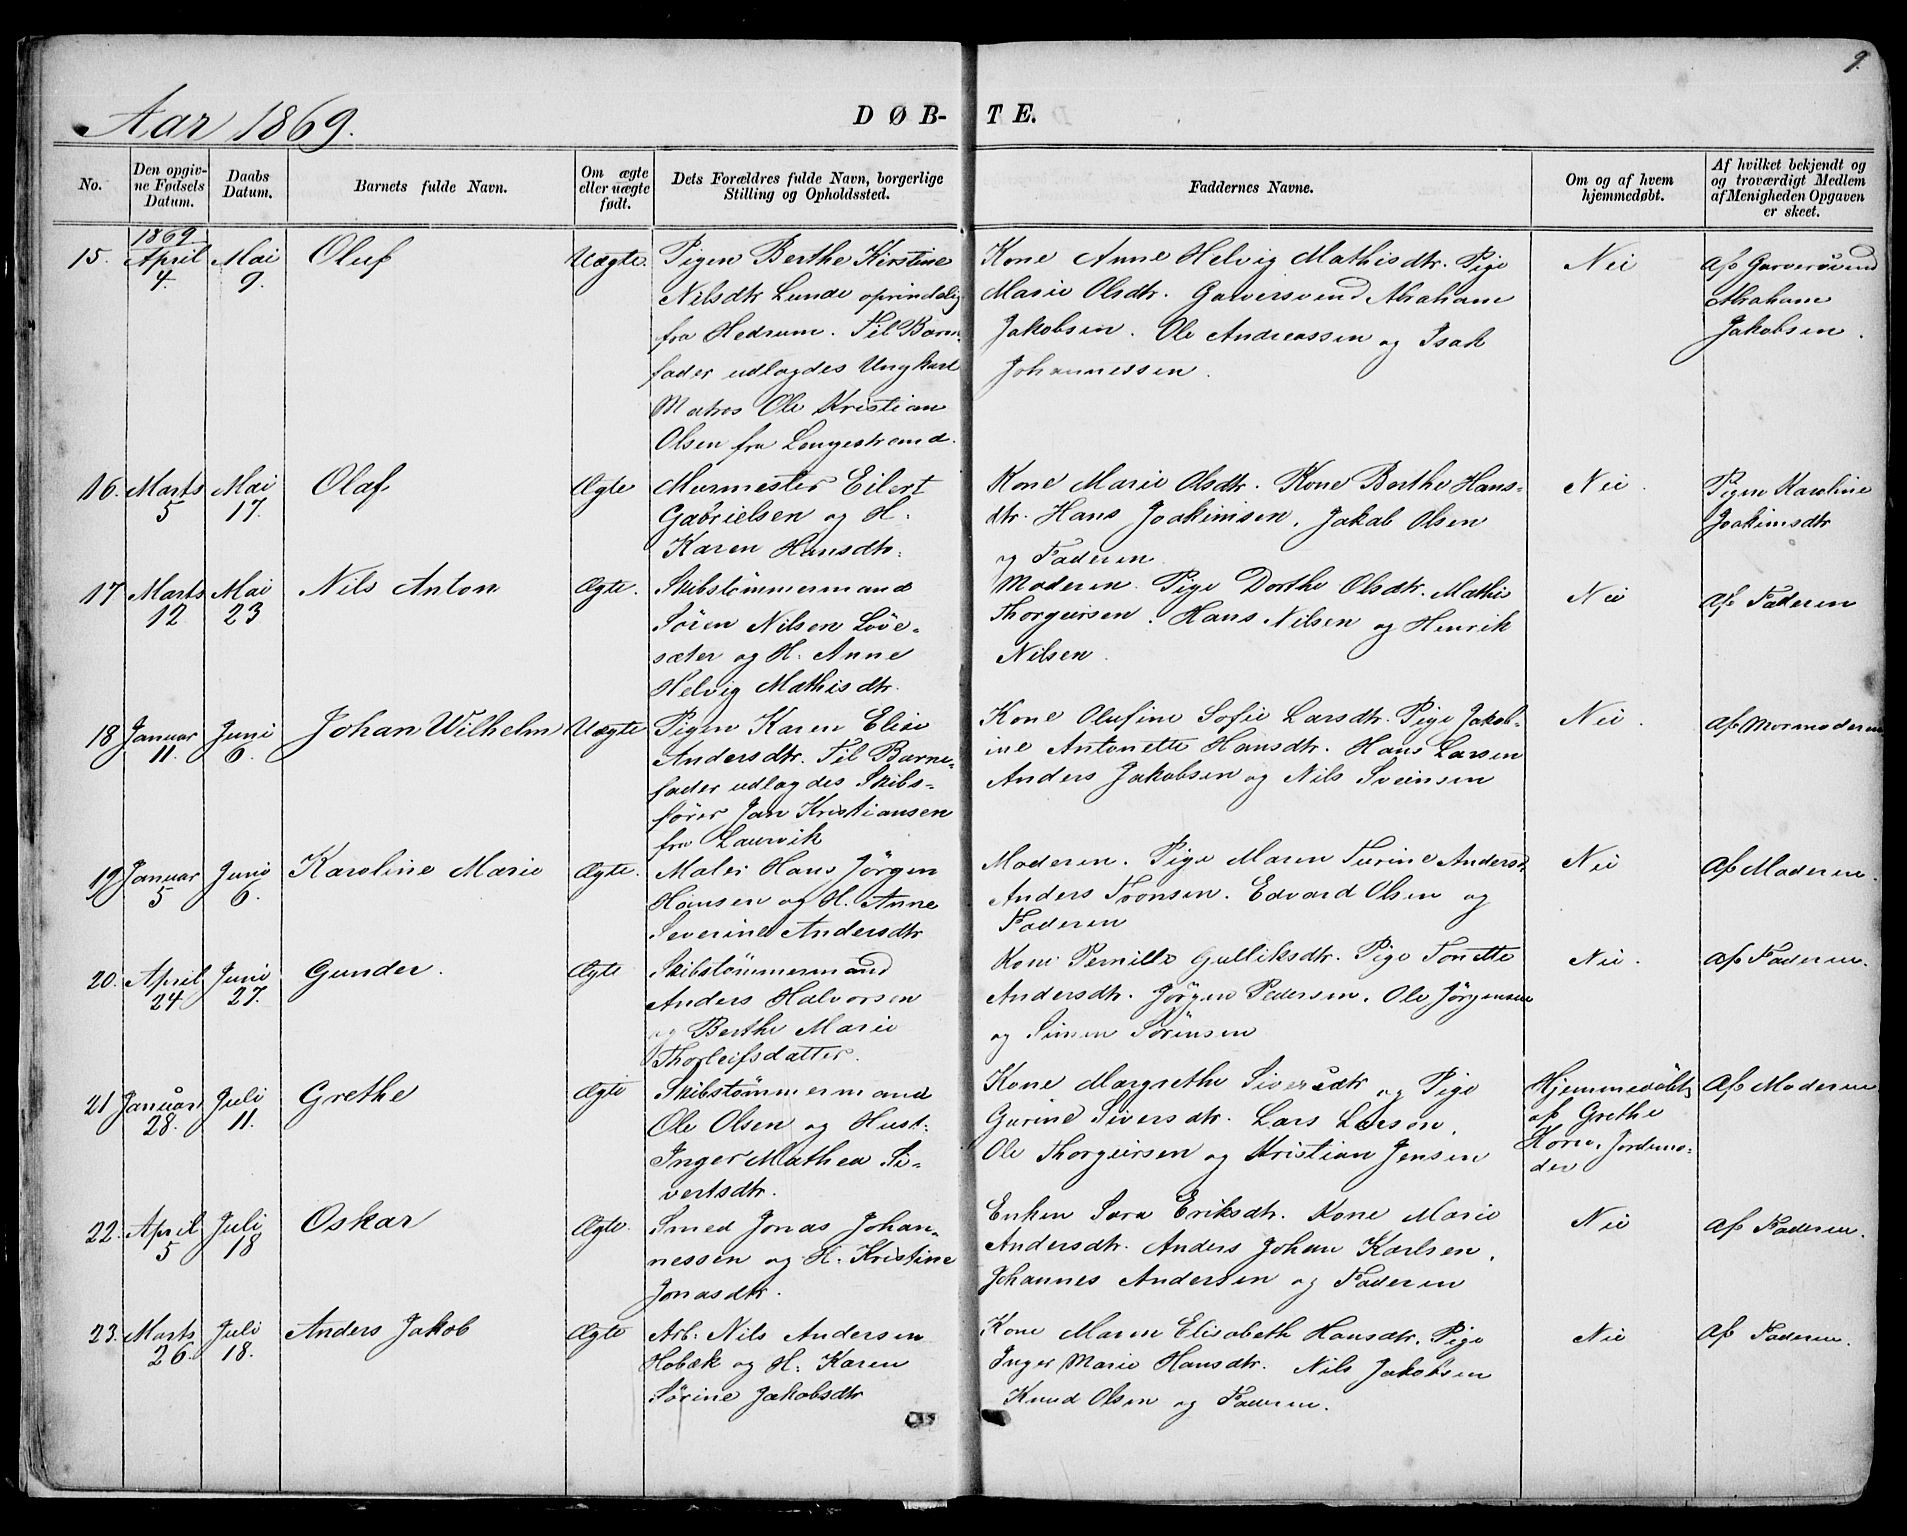 9.
Aar 1869.
DØB-TE.
No.
Den opgiv-
ne Fødsels
Datum.
Daabs
Datum.
Barnets fulde Navn.
Om ægte
eller uægte
født.
Dets Forældres fulde Navn, borgerlige
Stilling og Opholdssted.
Faddernes Navne.
Om og af hvem
hjemmedøbt.
Af hvilket bekjendt og
og troværdigt Medlem
af Menigheden Opgaven
er skeet.
1869
15. April 4. Mai 9. Oluf Uægte. Pigen Berthe Kirstine
Nilsdtr Lunde oprindelig
fra Hedrum. Til Barn-
fader udlagdes Ungkarl
Matros Ole Kristian
Olsen fra Langestrand.
Kone Anne Helvig Mathisdtr. Pige
Marie Olsdtr. Garversvend Abraham
Jakobsen. Ole Andreassen og Isak
Johannessen.
Nei
Af Garversvend
Abraham
Jakobsen.
16. Marts 5 Mai 17. Olaf Ægte Murmester Eilert
Gabrielsen og H.
Karen Hansdtr.
Kone Marie Olsdtr. Kone Berthe Hans-
dtr. Hans Joakimsen. Jakob Olsen
og Faderen
Nei.
Pigen Karoline
Joakimsdtr
17 Marts 12 Mai 23 Nils Anton Ægte. Skibstømmermand
Søren Nilsen Løve-
sæter og H. Anne
Helvig Mathisdtr.
Moderen. Pige Dorthe Olsdtr. Mathis
Thorgersen. Hans Nilsen og Henrik
Nilsen.
Nei
Af Faderen
18 Januar 11. Juni 6. Johan Wilhelm Uægte Pigen Karen Elise
Andersdtr. Til Barne-
fader udlagdes Skibs-
fører Jan Kristiansen
fra Laurvik
Kone Olufine Sofie Larsdtr. Pige Jakob-
ine Antonette Hansdtr. Hans Larsen
Anders Jakobsen og Nils Sveinsen
Nei.
Af Mormoderen
19 Januar 5 Juni 6. Karoline Marie Ægte. Maler Hans Jørgen
Hansen og H. Anne
Severine Andersdtr
Moderen. Pige Maren Turine Andersd
Anders Tronsen. Edvard Olsen og
Faderen
Nei
Af Moderen.
20. April 24. Juni 27. Gunder. Ægte Skibstømmermand
Anders Halvorsen
og Berthe Marie
Thorleifsdatter.
Kone Pernille Gulliksdtr. Pige Tonette
Andersdtr. Jørgen Pedersen. Ole Jørgensen
og Simen Sørensen
Nei.
Af Faderen.
21 Januar 28. Juli 11. Grethe Ægte Skibstømmermand
Ole Olsen og Hust:
Inger Mathea Si-
vertsdtr.
Kone Margrethe Siversdtr og Pige
Gurine Siversdtr. Lars Larsen.
Ole Thorgersen og Kristian Jensen
Hjemmedøbt
af Grethe
Horn, Jordemo-
der
Af Moderen
22. April 5 Juli 18 Oskar Ægte. Smed Jonas Johan-
nessen og H. Kristine
Jonasdtr.
Enken Sara Eriksdtr. Kone Marie
Andersdtr. Anders Johan Karlsen.
Johannes Andersen og Faderen
Nei
Af Faderen.
23. Marts 26. Juli 18. Anders Jakob Ægte Arb. Nils Andersen
Hobæk og H. Karen
Sørine Jakobsdtr
Kone Maren Elisabeth Hansdtr. Pige
Inger Marie Hansdtr. Nils Jakobsen
Knud Olsen og Faderen.
Nei
Af Faderen.